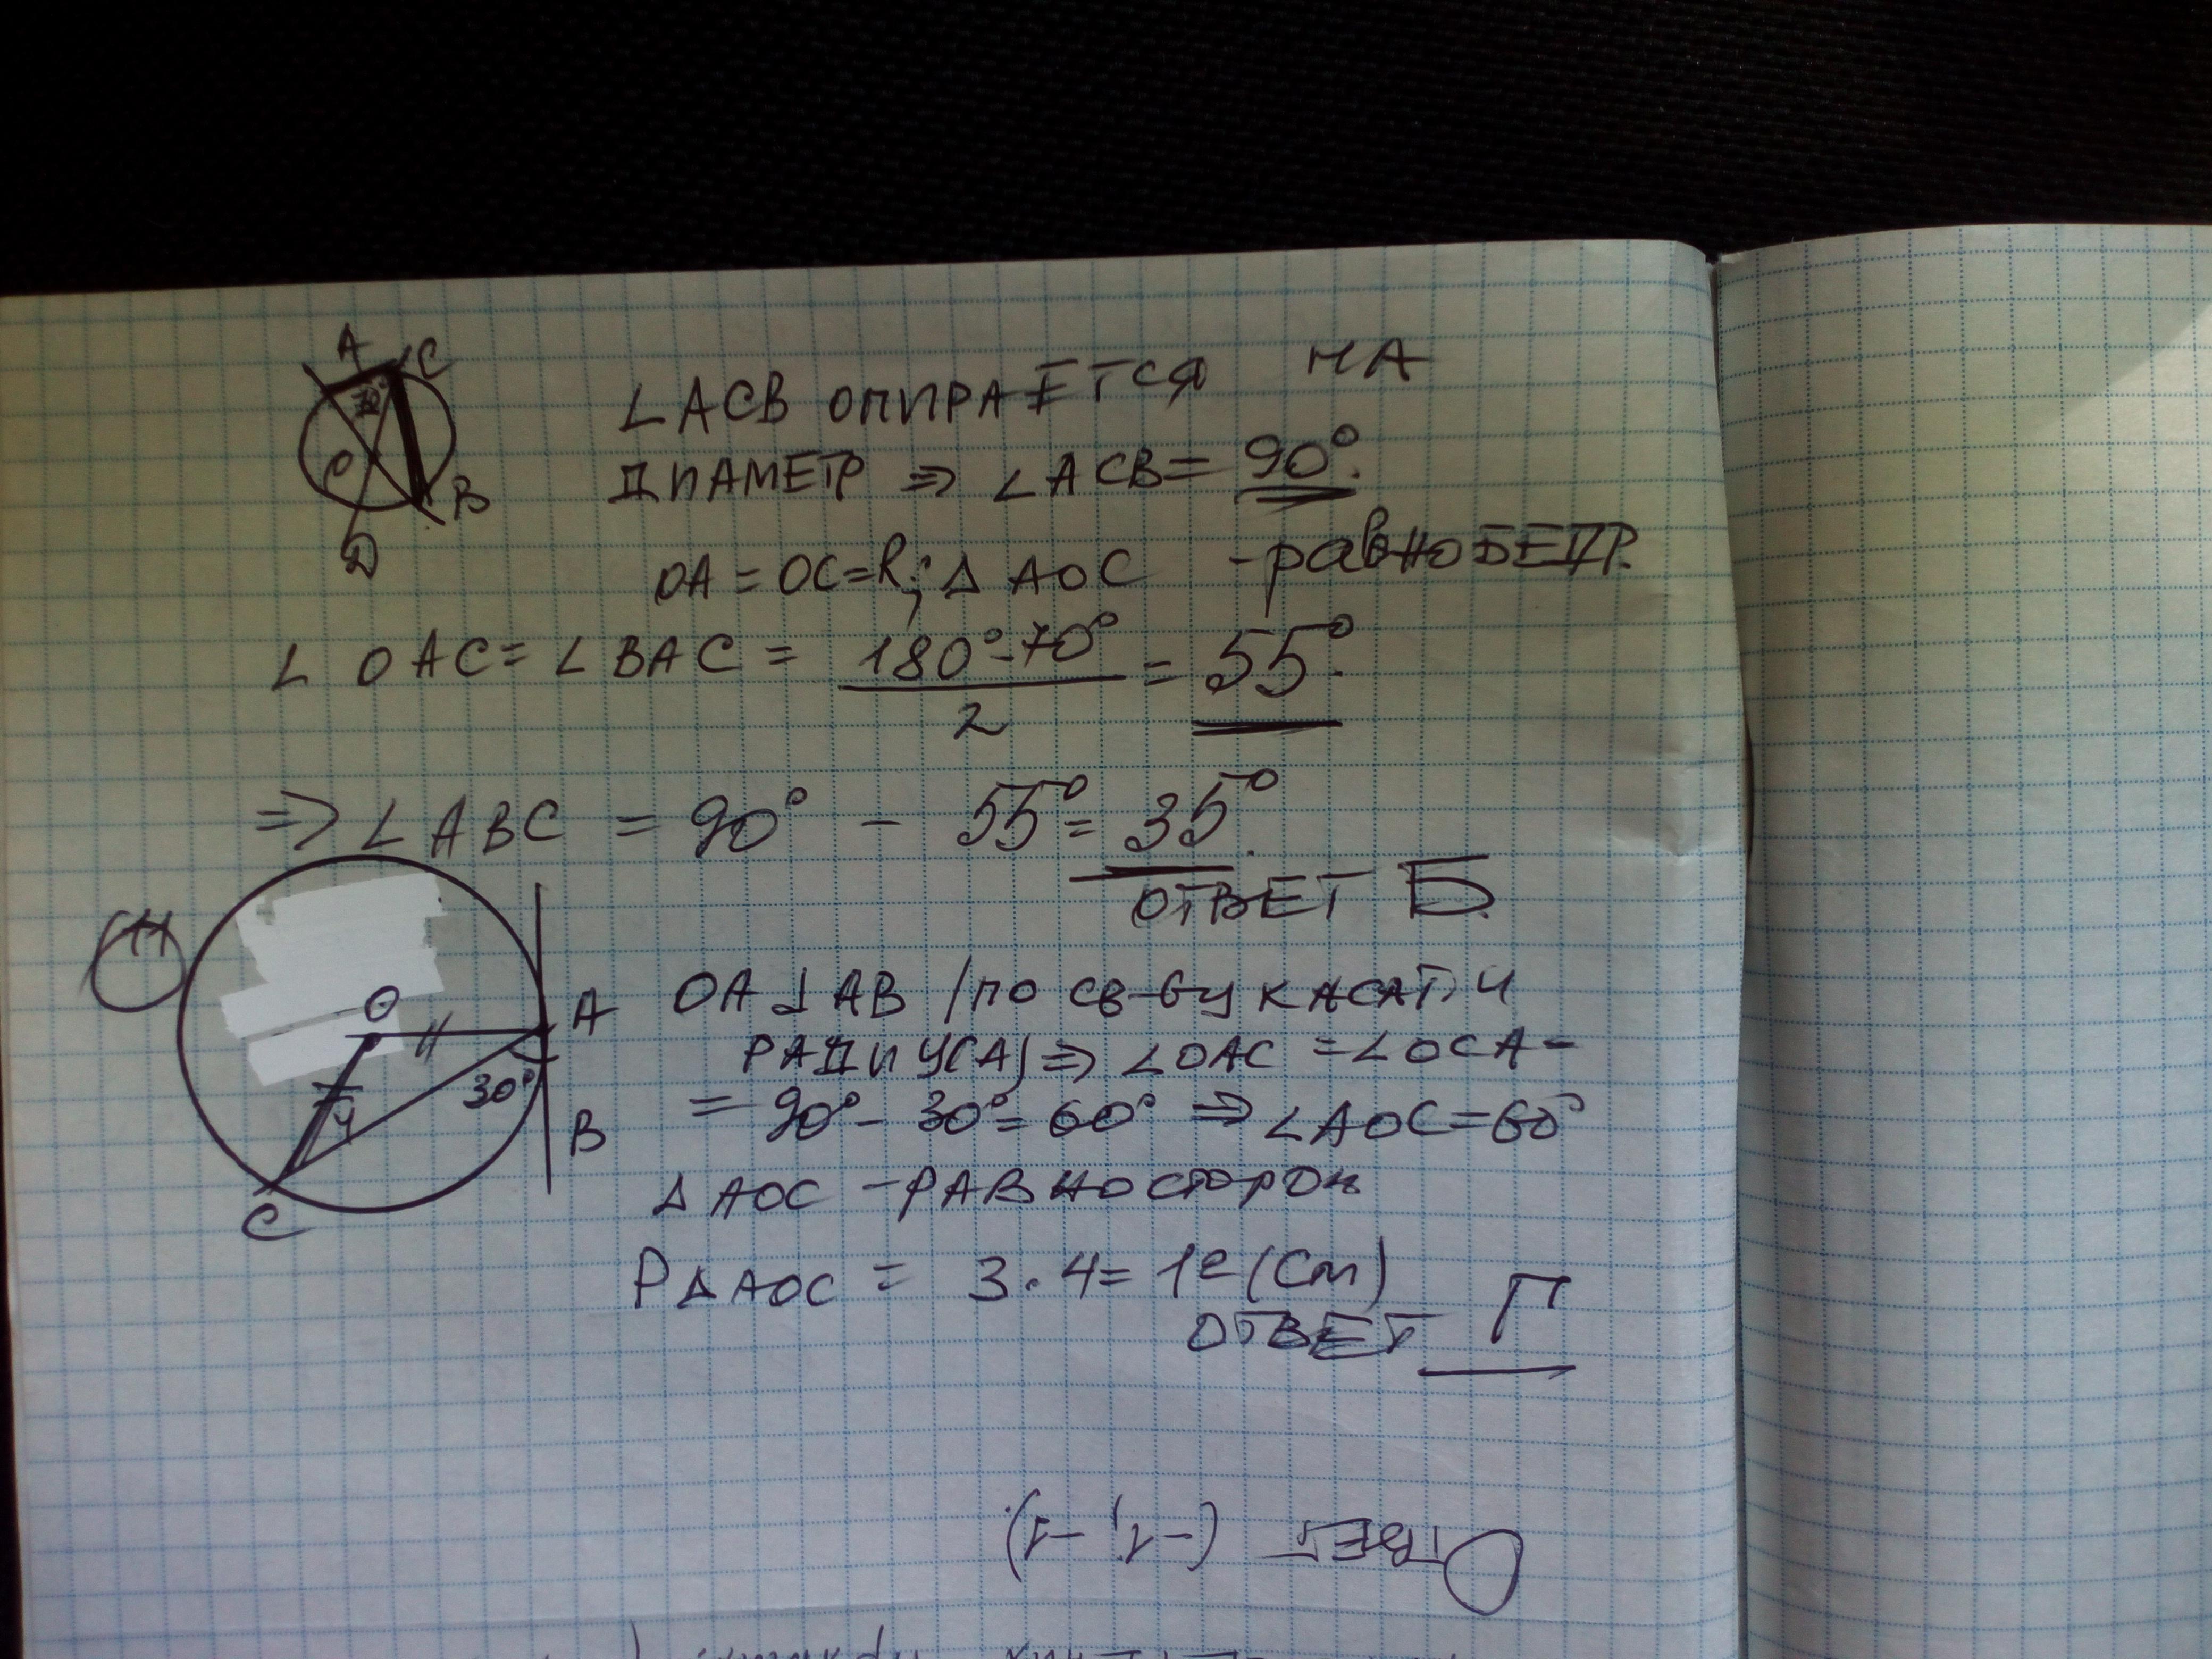 A C
O
B
D
∠ACB ОПИРАЕТСЯ НА
ДИАМЕТР ⇒ ∠ACB = 90°.
OA = OC = R; Δ AOC - равноБЕДР.
∠ OAC = ∠BAC = (180° - 70°)/2 = 55°.
⇒ ∠ABC = 90° - 55° = 35°.
ОТВЕТ Б.
O
A
4
30°
B
C
OA ⊥ AB /по св-ву КАСАТ. и
РАДИУСА) ⇒ ∠OAC = ∠OCA =
= 90° - 30° = 60° ⇒ ∠AOC = 60°
Δ AOC - РАВНОСТОРОН
PΔAOC = 3·4 = 12 (см)
ОТВЕТ Г
Ответ (-1; -1).